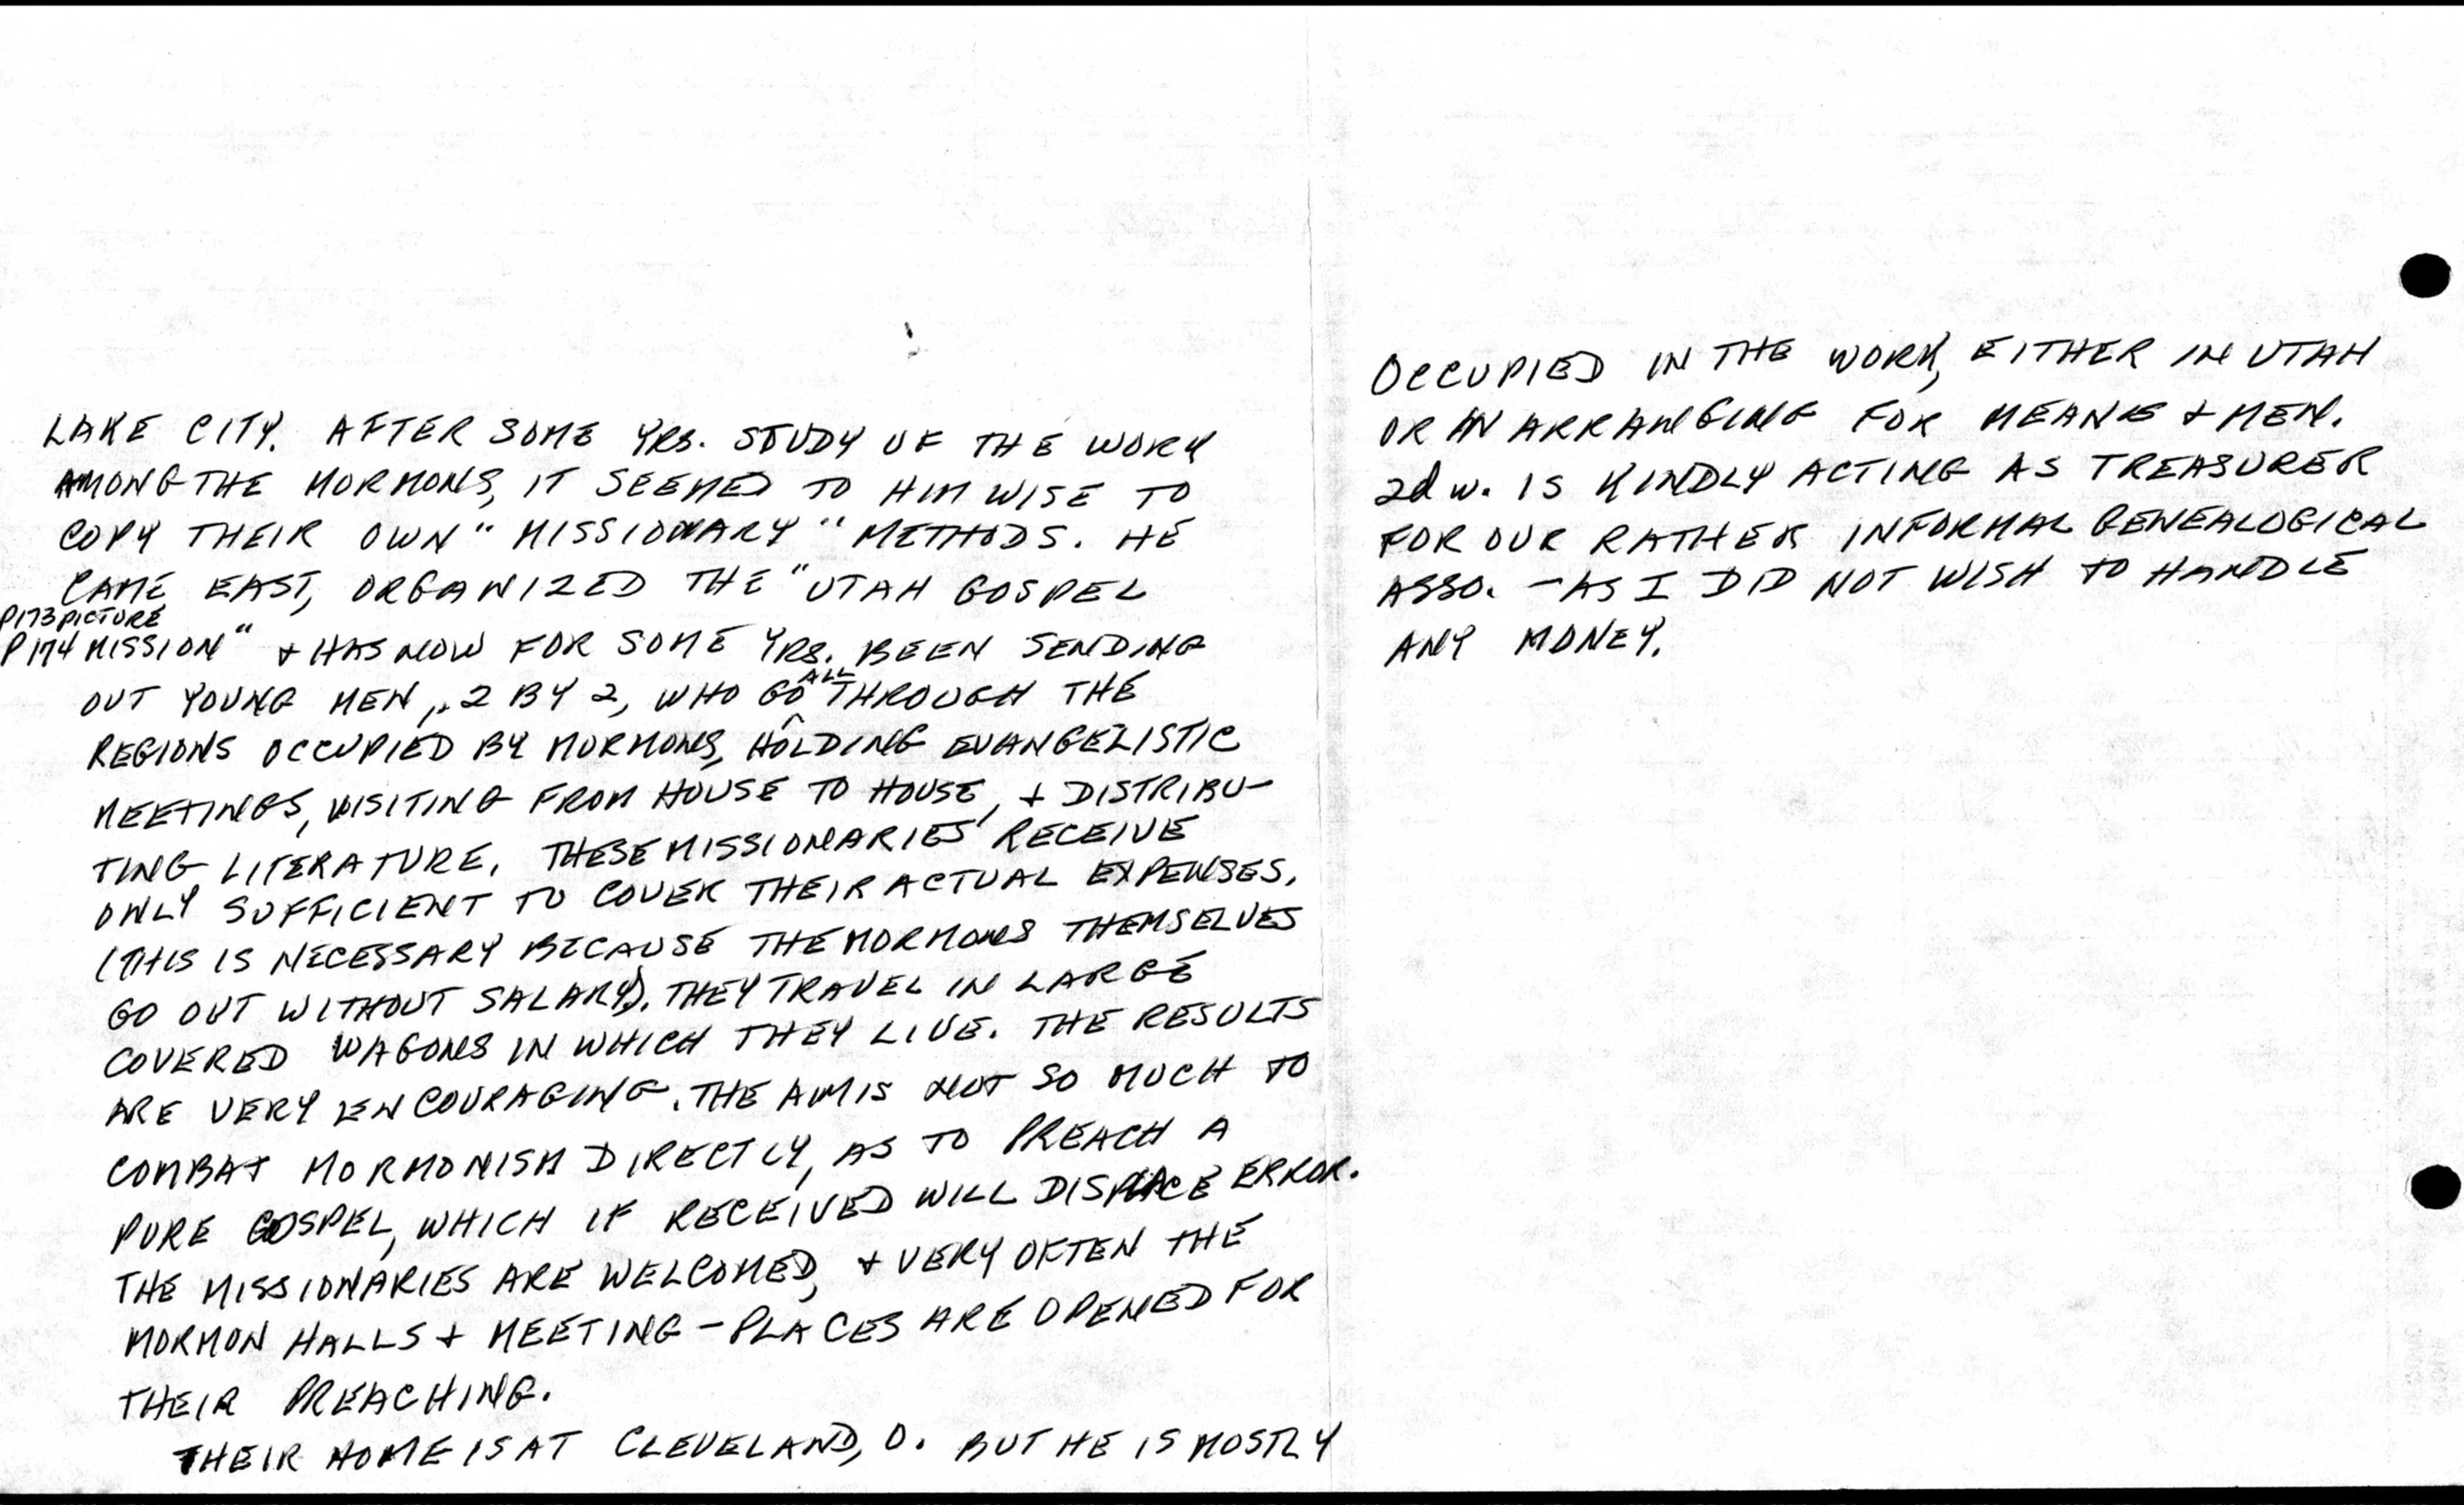 LAKE CITY. AFTER SOME YRS. STUDY OF THE WORK
AMONG THE MORMONS, IT SEEMED TO HIM WISE TO
COPY THEIR OWN "MISSIONARY" METHODS. HE
CAME EAST, ORGANIZED THE "UTAH GOSPEL
P173 PICTURE
P174 MISSION" & HAS NOW FOR SOME YRS. BEEN SENDING
OUT YOUNG MEN, 2 BY 2, WHO GO ALL THROUGH THE
REGIONS OCCUPIED BY MORMONS, HOLDING EVANGELISTIC
MEETINGS, VISITING FROM HOUSE TO HOUSE, & DISTRIBU-
TING LITERATURE. THESE MISSIONARIES RECEIVE
ONLY SUFFICIENT TO COVER THEIR ACTUAL EXPENSES.
(THIS IS NECESSARY BECAUSE THE MORMONS THEMSELVES
GO OUT WITHOUT SALARY). THEY TRAVEL IN LARGE
COVERED WAGONS IN WHICH THEY LIVE. THE RESULTS
ARE VERY ENCOURAGING. THE AIM IS NOT SO MUCH TO
COMBAT MORMONISM DIRECTLY, AS TO PREACH A
PURE GOSPEL, WHICH IF RECEIVED WILL DISPLACE ERROR.
THE MISSIONARIES ARE WELCOMED, & VERY OFTEN THE
MORMON HALLS & MEETING-PLACES ARE OPENED FOR
THEIR PREACHING.
THEIR HOME IS AT CLEVELAND, O. BUT HE IS MOSTLY
OCCUPIED IN THE WORK, EITHER IN UTAH
OR IN ARRANGING FOR MEANS & MEN.
2d w. IS KINDLY ACTING AS TREASURER
FOR OUR RATHER INFORMAL GENEALOGICAL
ASSO. - AS I DID NOT WISH TO HANDLE
ANY MONEY.